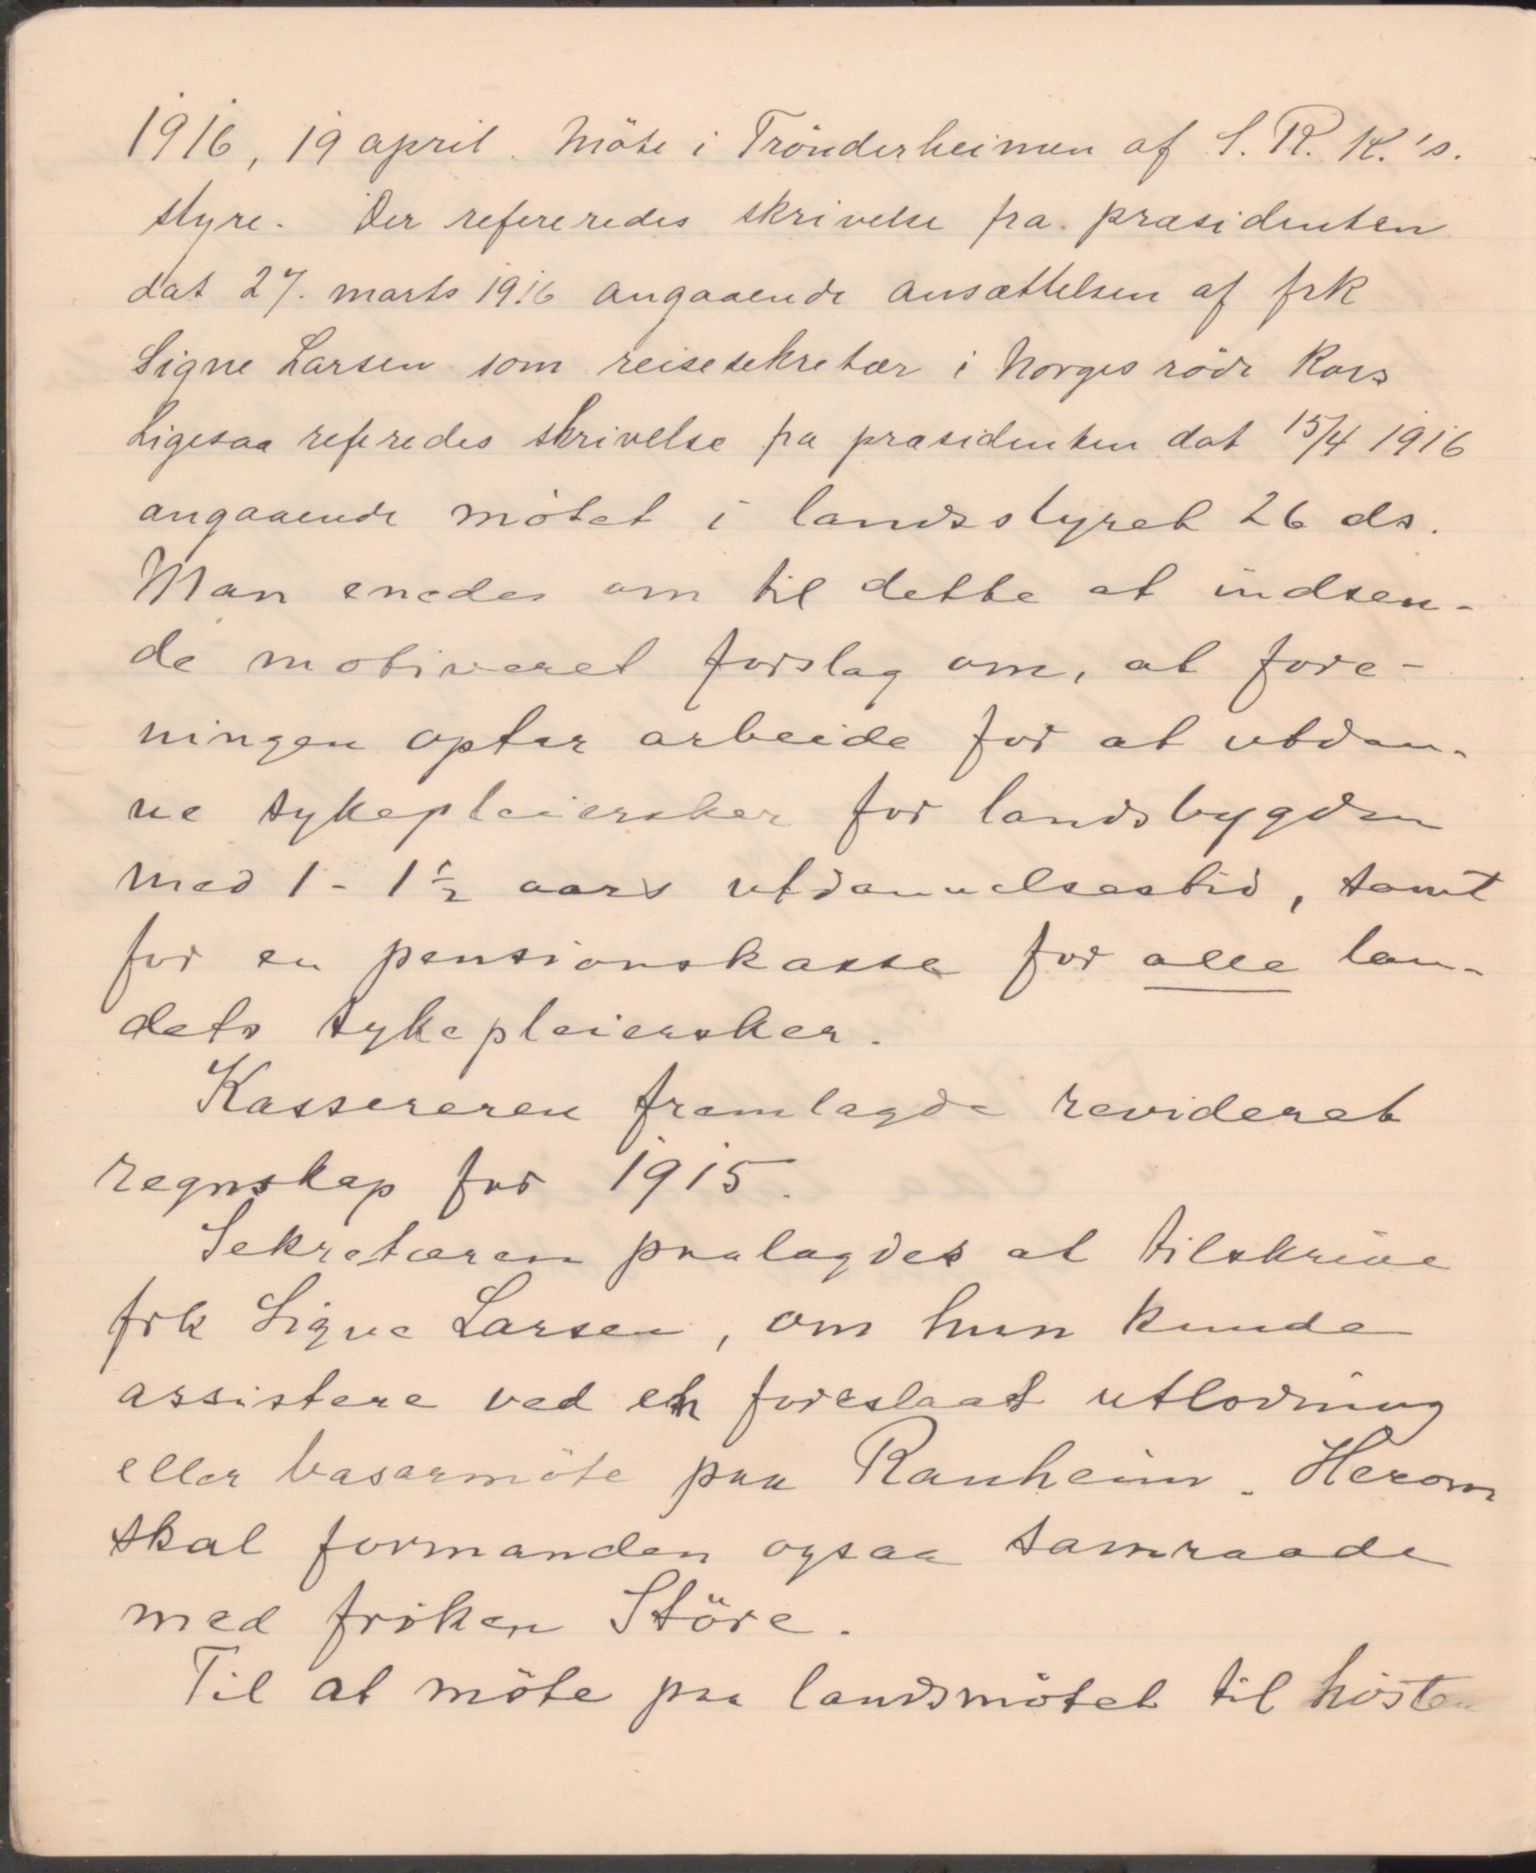 1916, 19 april. Möte i Trönderheimen af S. R. K.'s.
styre. Der refereredes skrivelse fra præsidenten
dat 27. marts 1916 angaaende ansættelsen af frk
Signe Larsen som reisesekretær i Norges röde Kors
Ligesaa referedes skrivelse fra præsidenten dat 15/4 1916
angaaende mötet i landsstyret 26 ds.
Man enedes om til dette at indsen-
de motiveret forslag om, at fore-
ningen optar arbeide for at utdan-
ne sykepleiersker for landsbygden
med 1 - 1½ aars utdannelsestid, samt
for en pensionskasse for alle lan-
dets sykepleiersker.
Kassereren fremlagde revideret
regnskap for 1915.
Sekretæren paalagdes at tilskrive
frk Signe Larsen, om hun kunde
assistere ved en foreslaat utlodning
eller basarmöte paa Ranheim. Herom
skal formanden ogsaa samraade
med fröken Störe.
Til at möte paa landsmötet til hösten